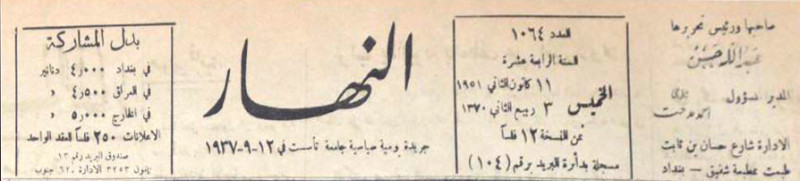 صاحبها ورئيس تحريرها
عبدالله حسن
المدير المسؤول
الادارة شارع حسان بن ثابت
طبعت بمطبعة شفيق - بغداد
العدد ١٠٦٤
السنة الرابعة عشرة
الخميس
١١ كانون الثاني ١٩٥١
٣ ربيع الثاني ١٣٧٠
ثمن النسخة ١٢ فلساً
مسجلة بدائرة البريد برقم (١٠٤)
النهار
جريدة يومية سياسية جامعة تأسست في ١٢-٩-١٩٣٧
بدل المشاركة
في بغداد ٤٫٠٠٠ دنانير
في العراق ٤٫٥٠٠ »
في الخارج ٥٫٠٠٠ »
الاعلانات ٢٥٠ فلساً للعقد الواحد
صندوق البريد رقم ١٣
تلفون ٣٢٥٣ الادارة ٦٢٠ جنوب